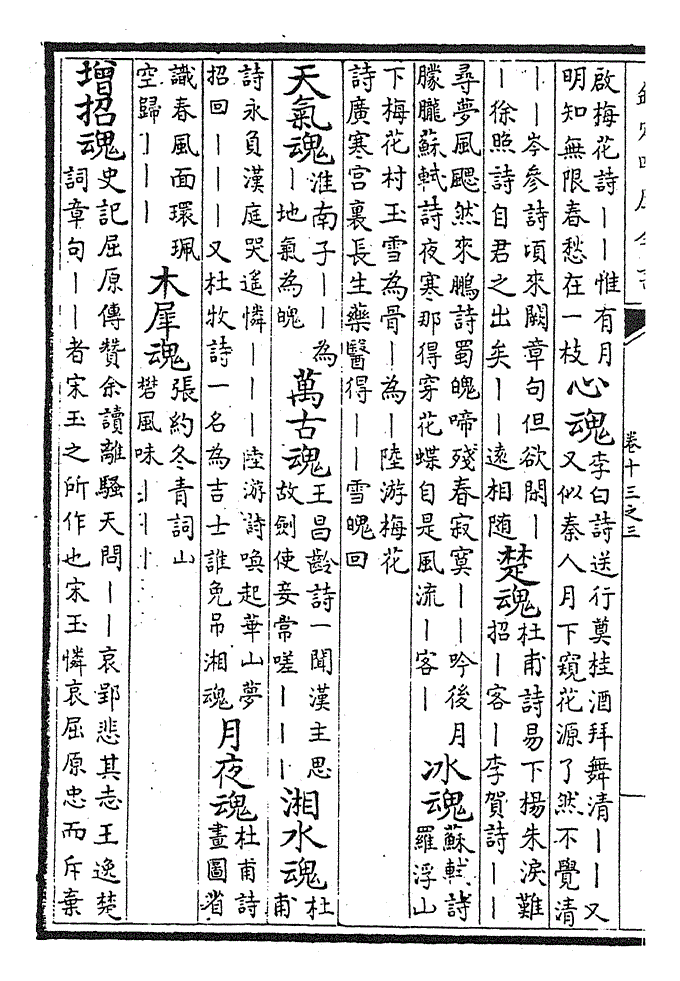 卷十三之三
啟梅花詩丨丨惟有月
明知無限春愁在一枝
心魂
李白詩送行奠桂酒拜舞清丨丨又
又似秦人月下窺花源了然不覺清
丨丨岑參詩頃來闕章句但欲閑丨
丨徐照詩自君之出矣丨丨遠相隨
楚魂
杜甫詩易下楊朱淚難
招丨客丨李賀詩丨丨
尋夢風颸然來鵬詩蜀魄啼殘春寂寞丨丨吟後月
朦朧蘇軾詩夜寒那得穿花蝶自是風流丨客丨
冰魂
蘇軾詩
羅浮山
下梅花村玉雪為骨丨為丨陸游梅花
詩廣寒宮裏長生藥醫得丨丨雪魄回
天氣魂
淮南子丨丨為
丨地氣為魄
萬古魂
王昌齡詩一聞漢主思
故劍使妾常嗟丨丨丨
湘水魂
杜
甫
詩永負漢庭哭遙憐丨丨丨陸游詩喚起華山夢
招回丨丨丨又杜牧詩一名為吉士誰免吊湘魂
月夜魂
杜甫詩
畫圖省
識春風面環珮
空歸丨丨丨
木犀魂
張約冬青詞山
礬風味丨丨丨
增招魂
史記屈原傳贊余讀離騷天問丨丨哀郢悲其志王逸楚
詞章句丨丨者宋玉之所作也宋玉憐哀屈原忠而斥棄